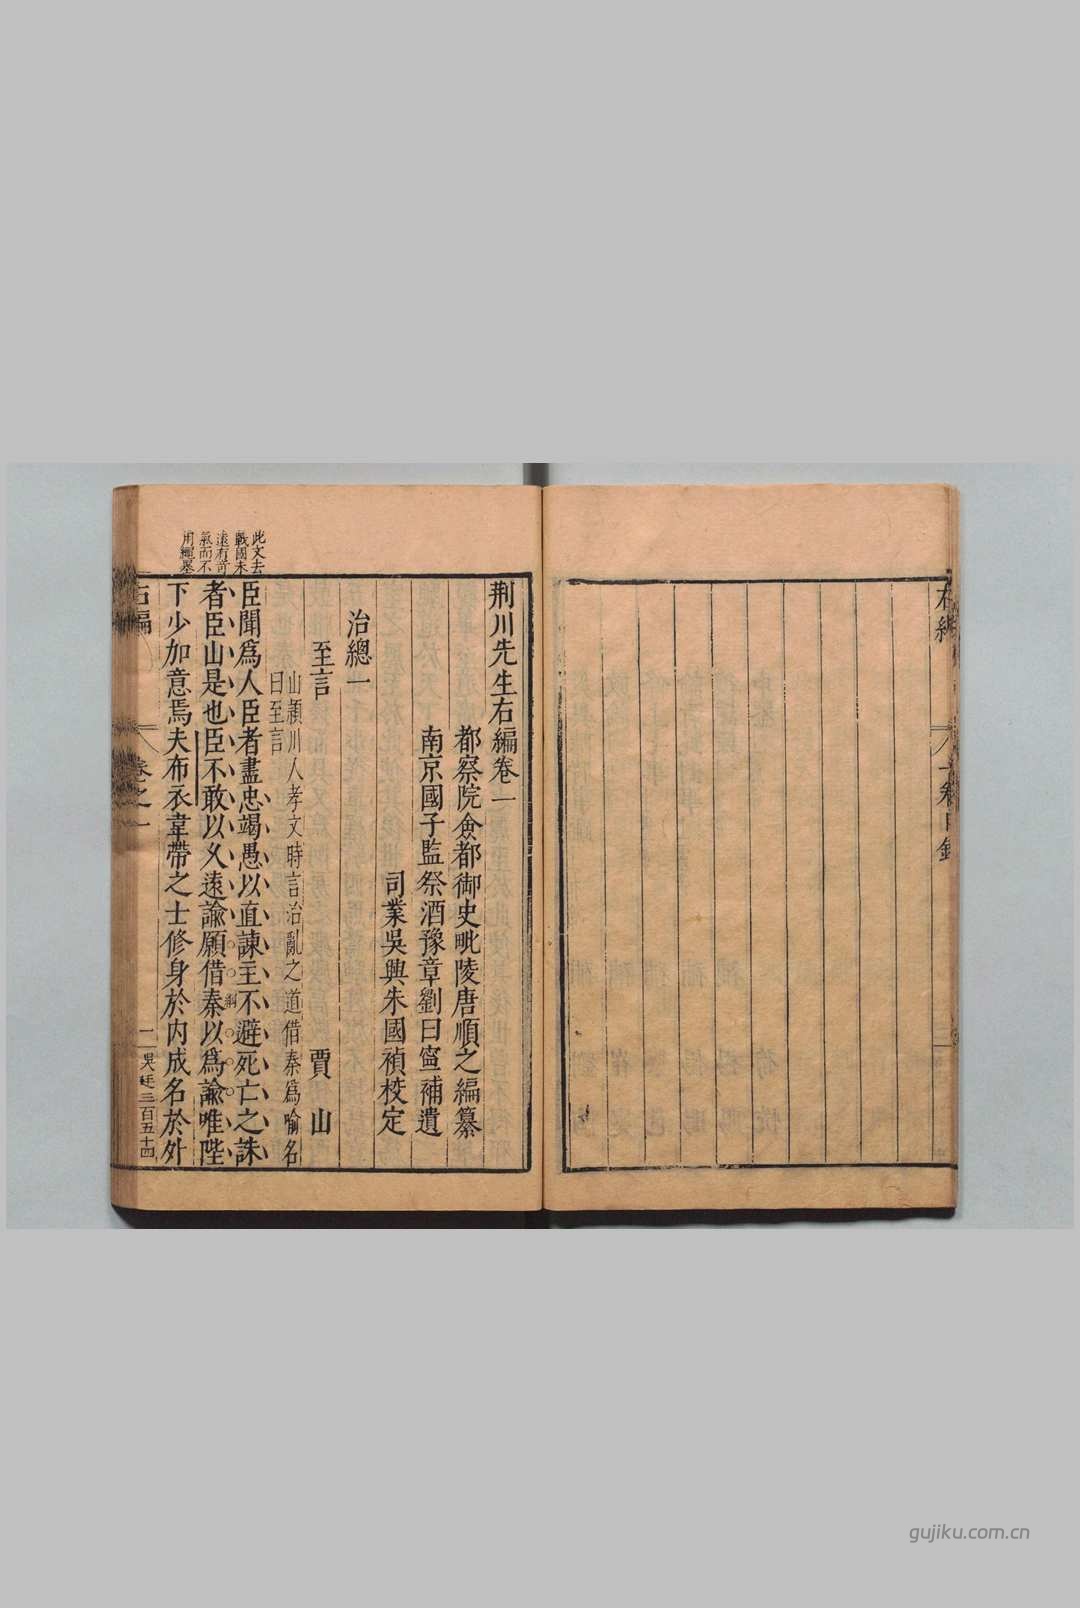 右編
荆川先生右編卷一
都察院僉都御史毗陵唐順之編纂
南京國子監祭酒豫章劉曰寧補遺
司業吳興朱國禎校定
治總一
至言 賈山
山潁川人孝文時言治亂之道借秦爲喻名
曰至言
此文去
戰國未
遠有奇
氣而不
用繩墨
臣聞爲人臣者盡忠竭愚以直諫主不避死亡之誅
者臣山是也臣不敢以久遠諭願借秦以爲諭唯陛
綱
下少加意焉夫布衣韋帶之士修身於内成名於外
右編
卷之一
一
三百五十四
gujiku.com.cn